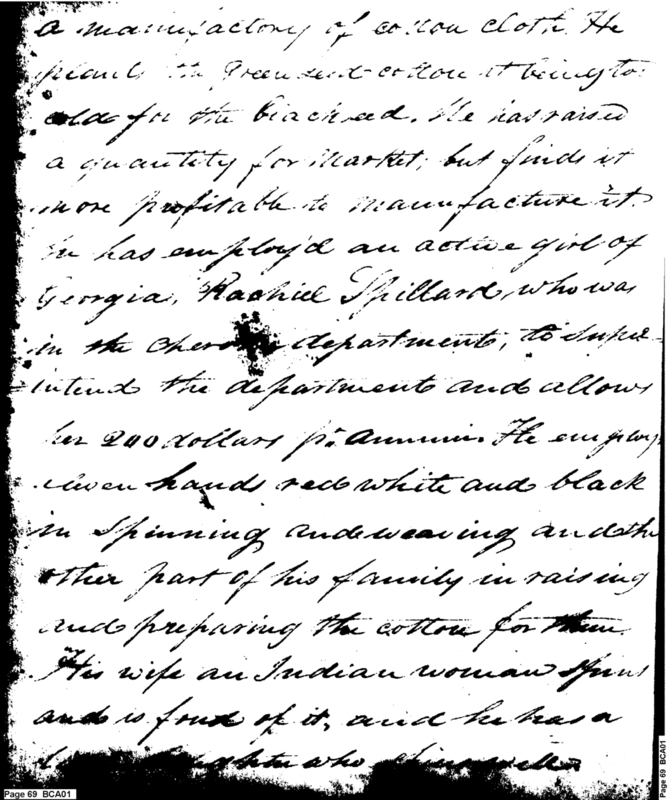 a manufactory of cotton cloth. He
plants the green seed cotton it being to
cold for the blackseed. He has raised
a quantity for market, but finds it
more profitable to manufacture it.
He has employ'd an active girl of
Georgia, Rachiel Spillard, who was
in the Cherokee department, to super
intend the department and allows
her 200 dollars pr. annum. He employs
eleven hands red white and black
in Spinning and weaving and the
other part of his family in raising
and preparing the cotton for them.
His wife an Indian woman spins
and is fond of it, and he has a
daughter who spins well.
Page 69 BCA01
Page 69 BCA01